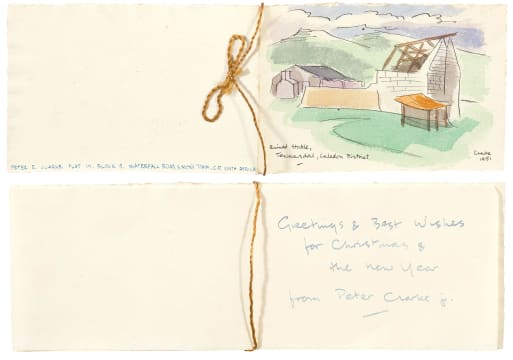 Ruined Stable,
Tesselaarsdal, Caledon District
Clarke
1951
PETER E. CLARKE FLAT 14, BLOCK 8, WATERFALL ROAD, SIMON'S TOWN, C.P. SOUTH AFRICA
Greetings & Best Wishes
for Christmas &
the New Year
from Peter Clarke jr.